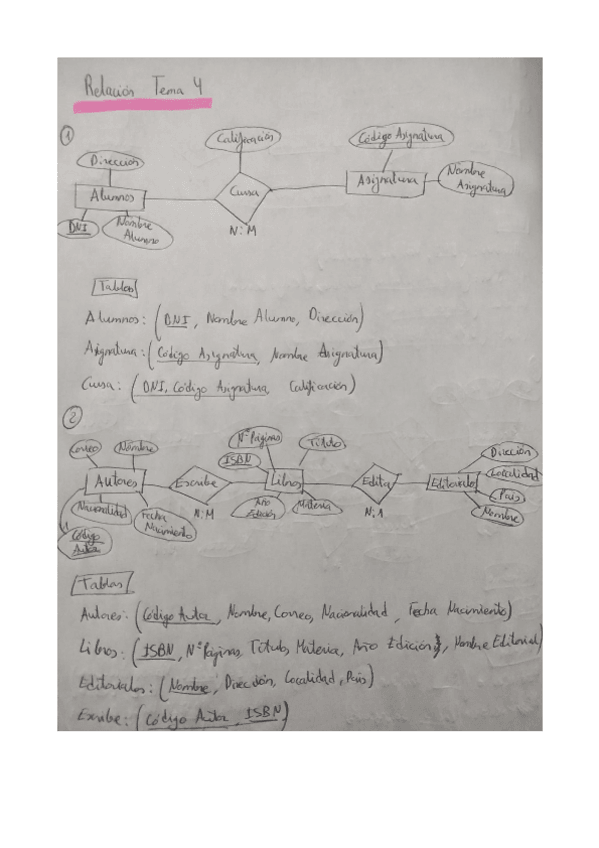 Relación Tema 4
①
Calificación
Código Asignatura
Dirección
Alumnos
Cursa
Asignatura
Nombre Asignatura
DNI
Nombre Alumno
N:M
Tablas
Alumnos: (DNI, Nombre Alumno, Dirección)
Asignatura: (Código Asignatura, Nombre Asignatura)
Cursa: (DNI, Código Asignatura, Calificación)
②
Correo
Nombre
NºPáginas
Título
ISBN
Dirección
Localidad
Autores
Escribe
Libros
Edita
Editoriales
País
Nacionalidad
Fecha Nacimiento
N:M
Año Edición
Materia
N:1
Nombre
Código Autor
Tablas
Autores: (Código Autor, Nombre, Correo, Nacionalidad, Fecha Nacimiento)
Libros: (ISBN, NºPáginas, Título, Materia, Año Edición, Nombre Editorial)
Editoriales: (Nombre, Dirección, Localidad, País)
Escribe: (Código Autor, ISBN)